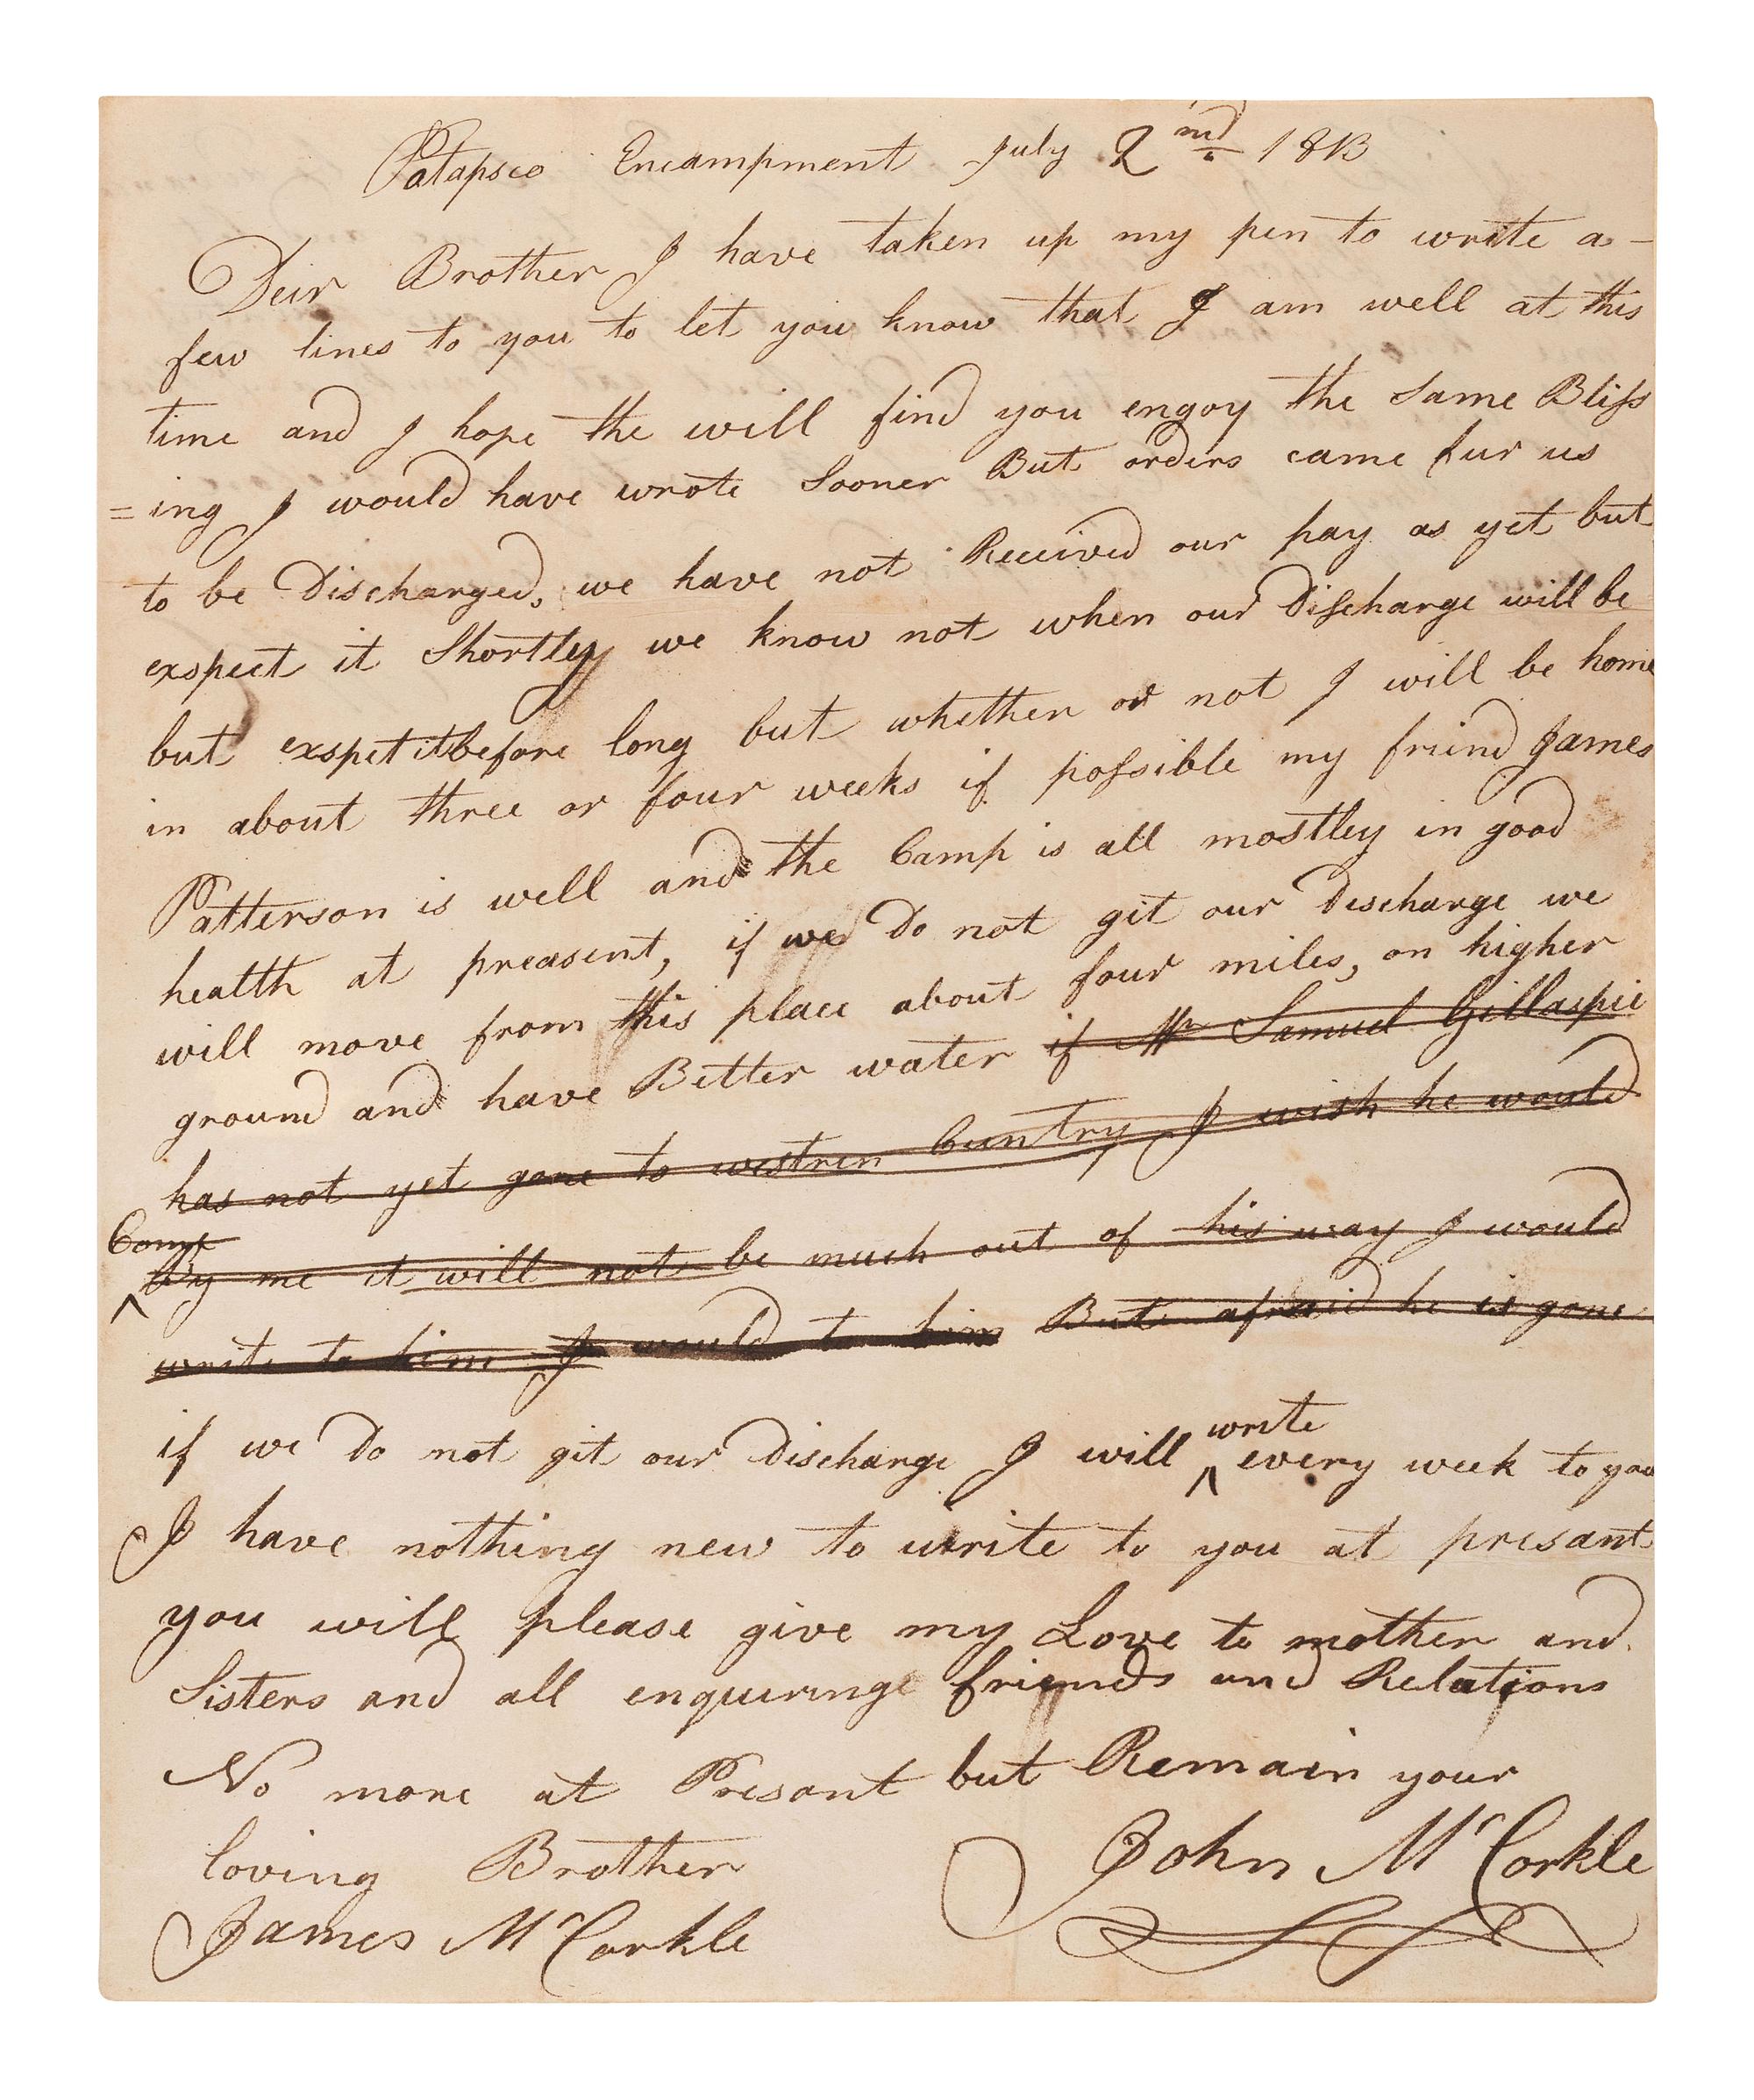 Patapsco Encampment July 2nd 1813
Deir Brother I have taken up my pen to write a
few lines to you to let you know that I am well at this
time and I hope the will find you engoy the Same Bliss
=ing I would have wrote Sooner But orders came fur us
to be Discharged, we have not Received our pay as yet but
exspect it Shortley we know not when our Discharge will be
but exspet it before long but whether or not I will be home
in about three or four weeks if possible my friend James
Patterson is well and the Camp is all mostley in good
health at preasent, if we Do not git our Discharge we
will move from this place about four miles, on higher
ground and have Better water if Mr Samuel Gillaspie
has not yet gone to westren Cuntry I wish he would
Come
^ by me it will not be much out of his way I would
write to him I would to him But afraid he is gone
if we Do not git our Discharge I will ^ write every week to you
I have nothing new to write to you at presant
you will please give my Love to mother and
Sisters and all enquiringe friends and Relations
No more at Presant but Remain your
loving Brother John McCorkle
James McCorkle